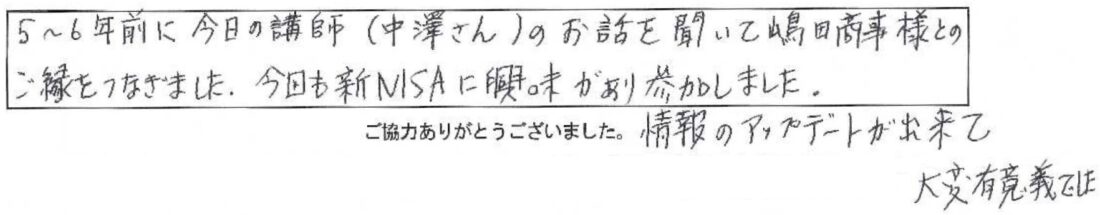 5～6年前に今日の講師(中澤さん)のお話を聞いて嶋田商事様との
ご縁をつなぎました.今回も新NISAに興味があり参加しました.
ご協力ありがとうございました。情報のアップデートが出来て
大変有意義でした